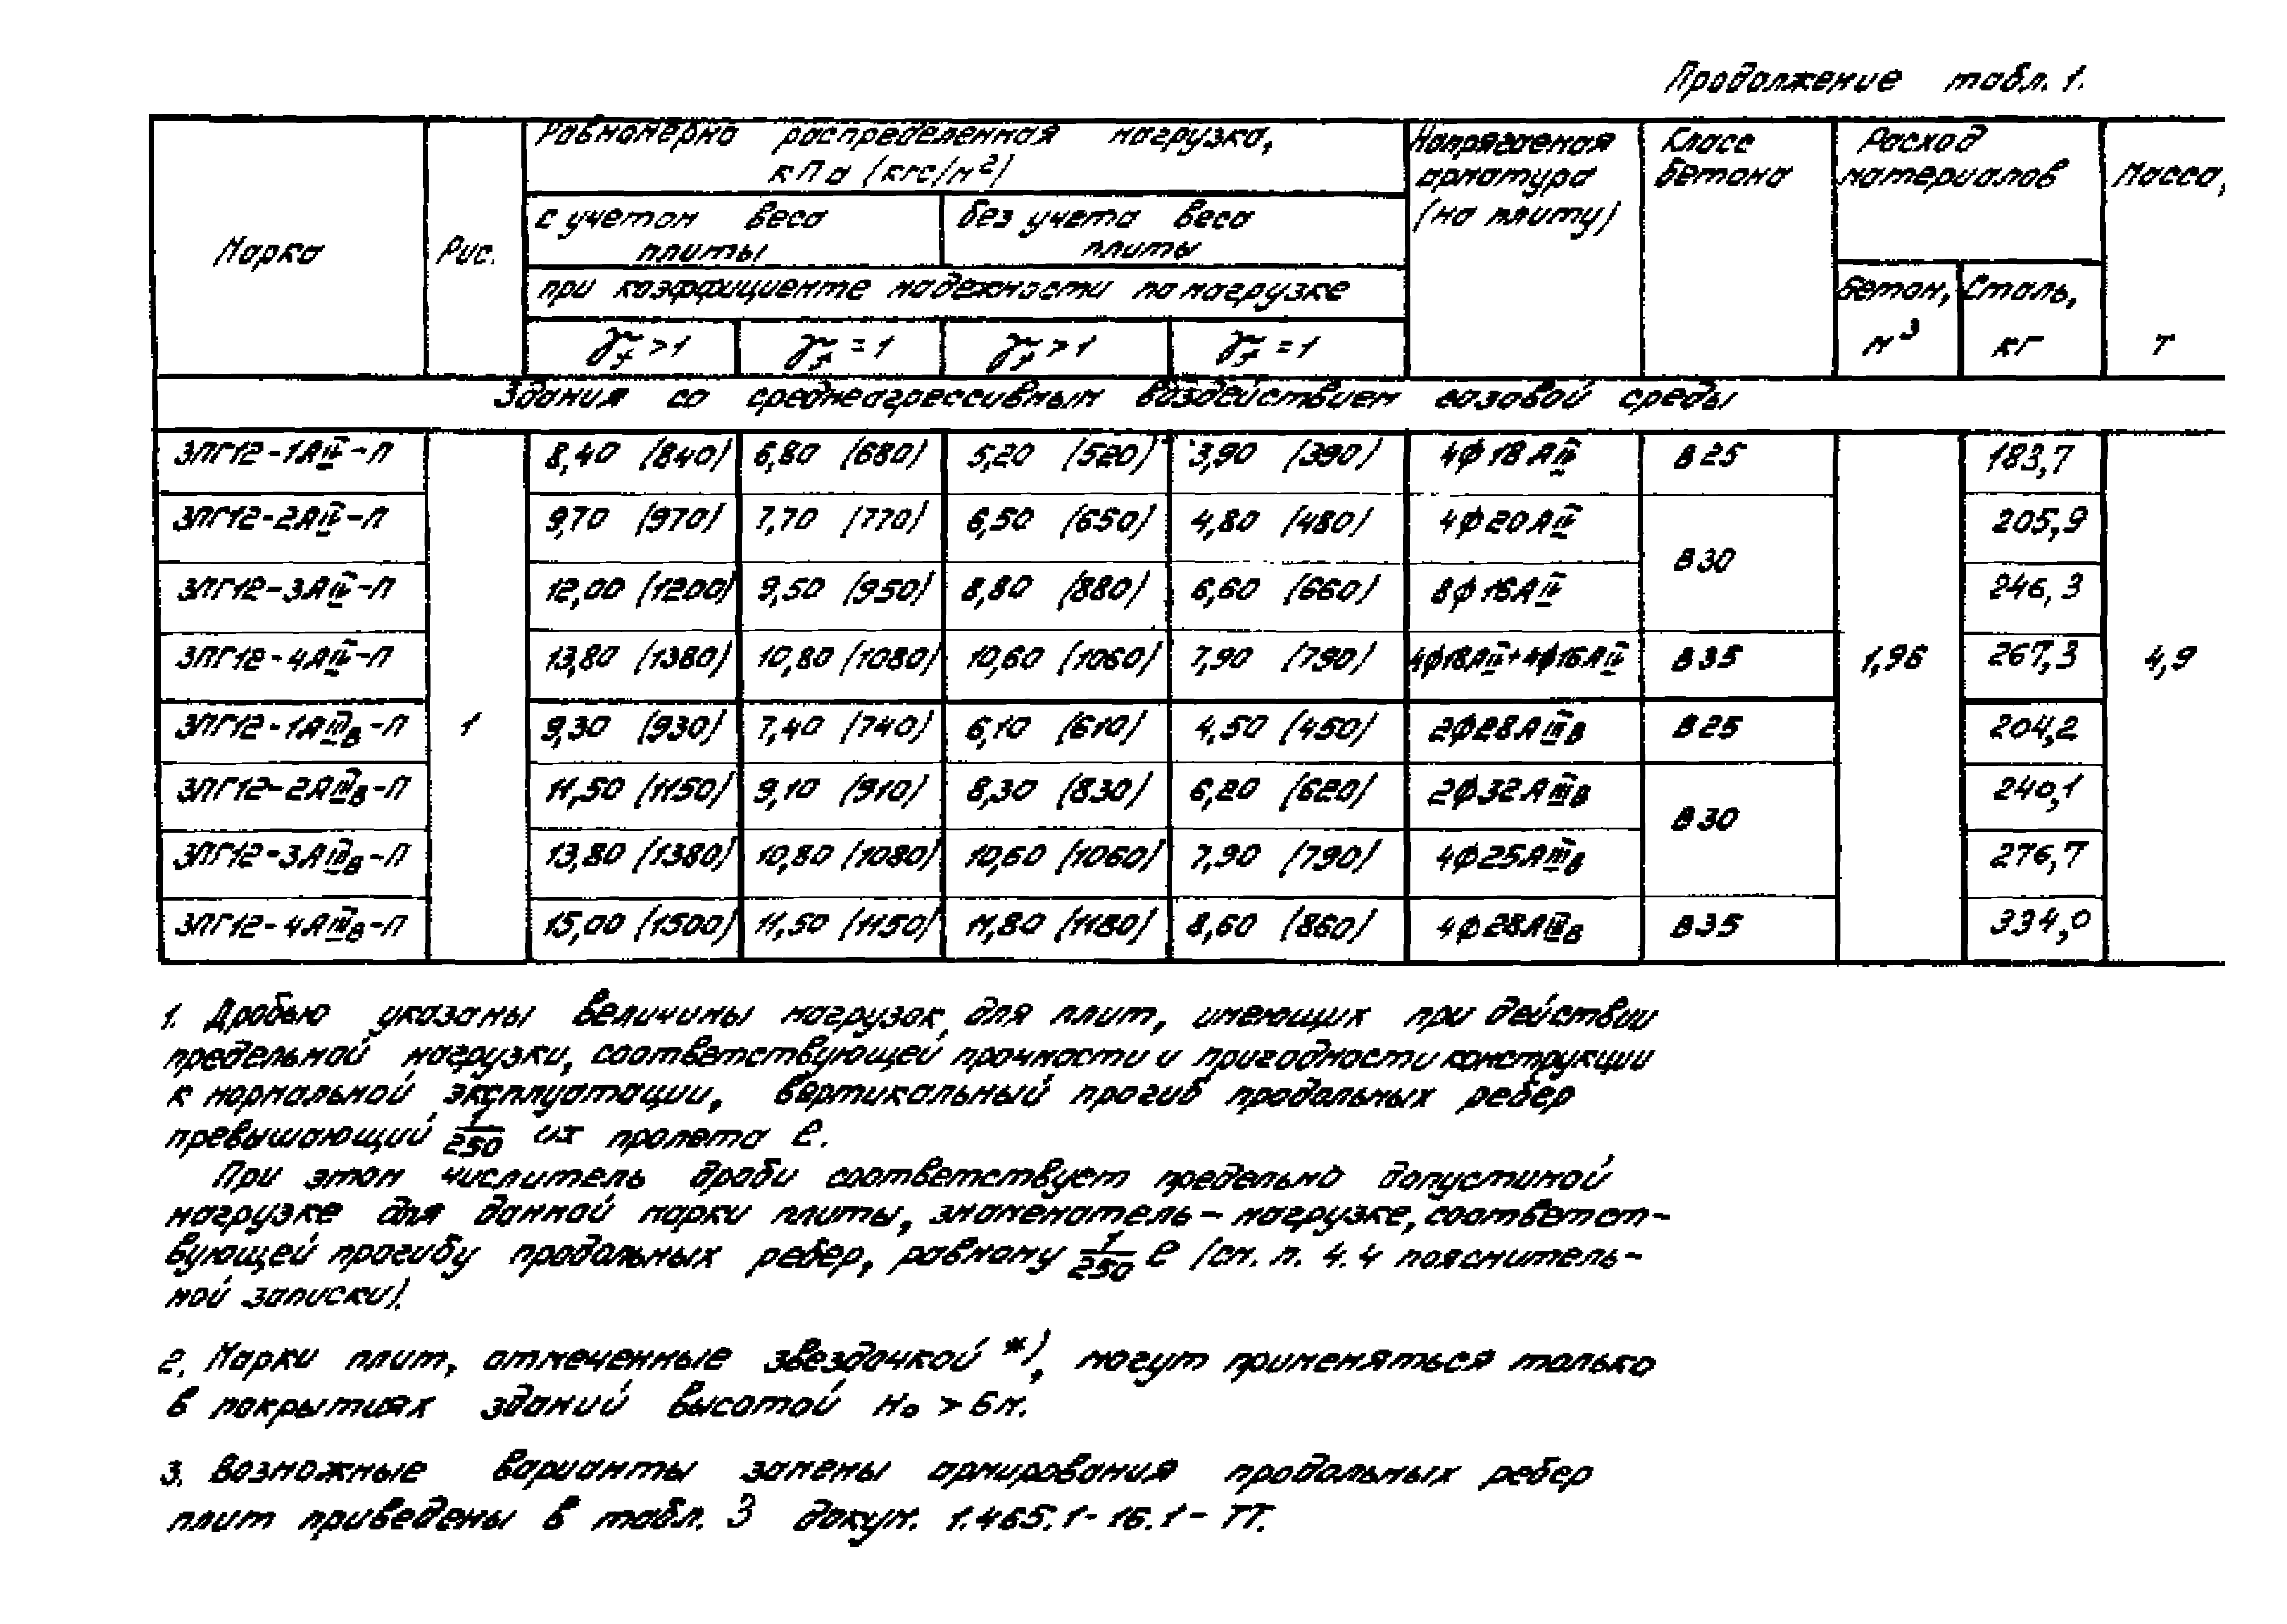 Продолжение табл. 1.
Марка
Рис.
Равномерно распределенная нагрузка,
кПа (кгс/м²)
с учетом веса
плиты
без учета веса
плиты
при коэффициенте надежности по нагрузке
γf >1
γf =1
γf >1
γf =1
Напрягаемая
арматура
(на плиту)
Класс
бетона
Расход
материалов
Бетон,
м³
Сталь,
кг
Масса,
т
Здания со среднеагрессивным воздействием газовой среды
3ПГ12-1АIV-П 8,40 (840) 6,80 (680) 5,20 (520) 3,90 (390) 4ф18АIV В25 183,7
3ПГ12-2АIV-П 9,70 (970) 7,70 (770) 6,50 (650) 4,80 (480) 4ф20АIV 205,9
В30
3ПГ12-3АIV-П 12,00 (1200) 9,50 (950) 8,80 (880) 6,60 (660) 8ф16АIV 246,3
3ПГ12-4АIV-П 13,80 (1380) 10,80 (1080) 10,60 (1060) 7,90 (790) 4ф18АIV+4ф16АIV В35 1,96 267,3 4,9
3ПГ12-1АIIIв-П 1 9,30 (930) 7,40 (740) 6,10 (610) 4,50 (450) 2ф28АIIIв В25 204,2
3ПГ12-2АIIIв-П 11,50 (1150) 9,10 (910) 8,30 (830) 6,20 (620) 2ф32АIIIв 240,1
В30
3ПГ12-3АIIIв-П 13,80 (1380) 10,80 (1080) 10,60 (1060) 7,90 (790) 4ф25АIIIв 276,7
3ПГ12-4АIIIв-П 15,00 (1500) 11,50 (1150) 11,80 (1180) 8,60 (860) 4ф28АIIIв В35 334,0
1. Дробью указаны величины нагрузок для плит, имеющих при действии
предельной нагрузки, соответствующей прочности и пригодности конструкции
к нормальной эксплуатации, вертикальный прогиб продольных ребер
превышающий 1/250 их пролета ℓ.
При этом числитель дроби соответствует предельно допустимой
нагрузке для данной марки плиты, знаменатель – нагрузке, соответст-
вующей прогибу продольных ребер, равному 1/250 ℓ (см. п. 4.4 пояснитель-
ной записки).
2. Марки плит, отмеченные звездочкой *), могут применяться только
в покрытиях зданий высотой Но > 6м.
3. Возможные варианты замены армирования продольных ребер
плит приведены в табл. 3 докум. 1.465.1-16.1-ТТ.